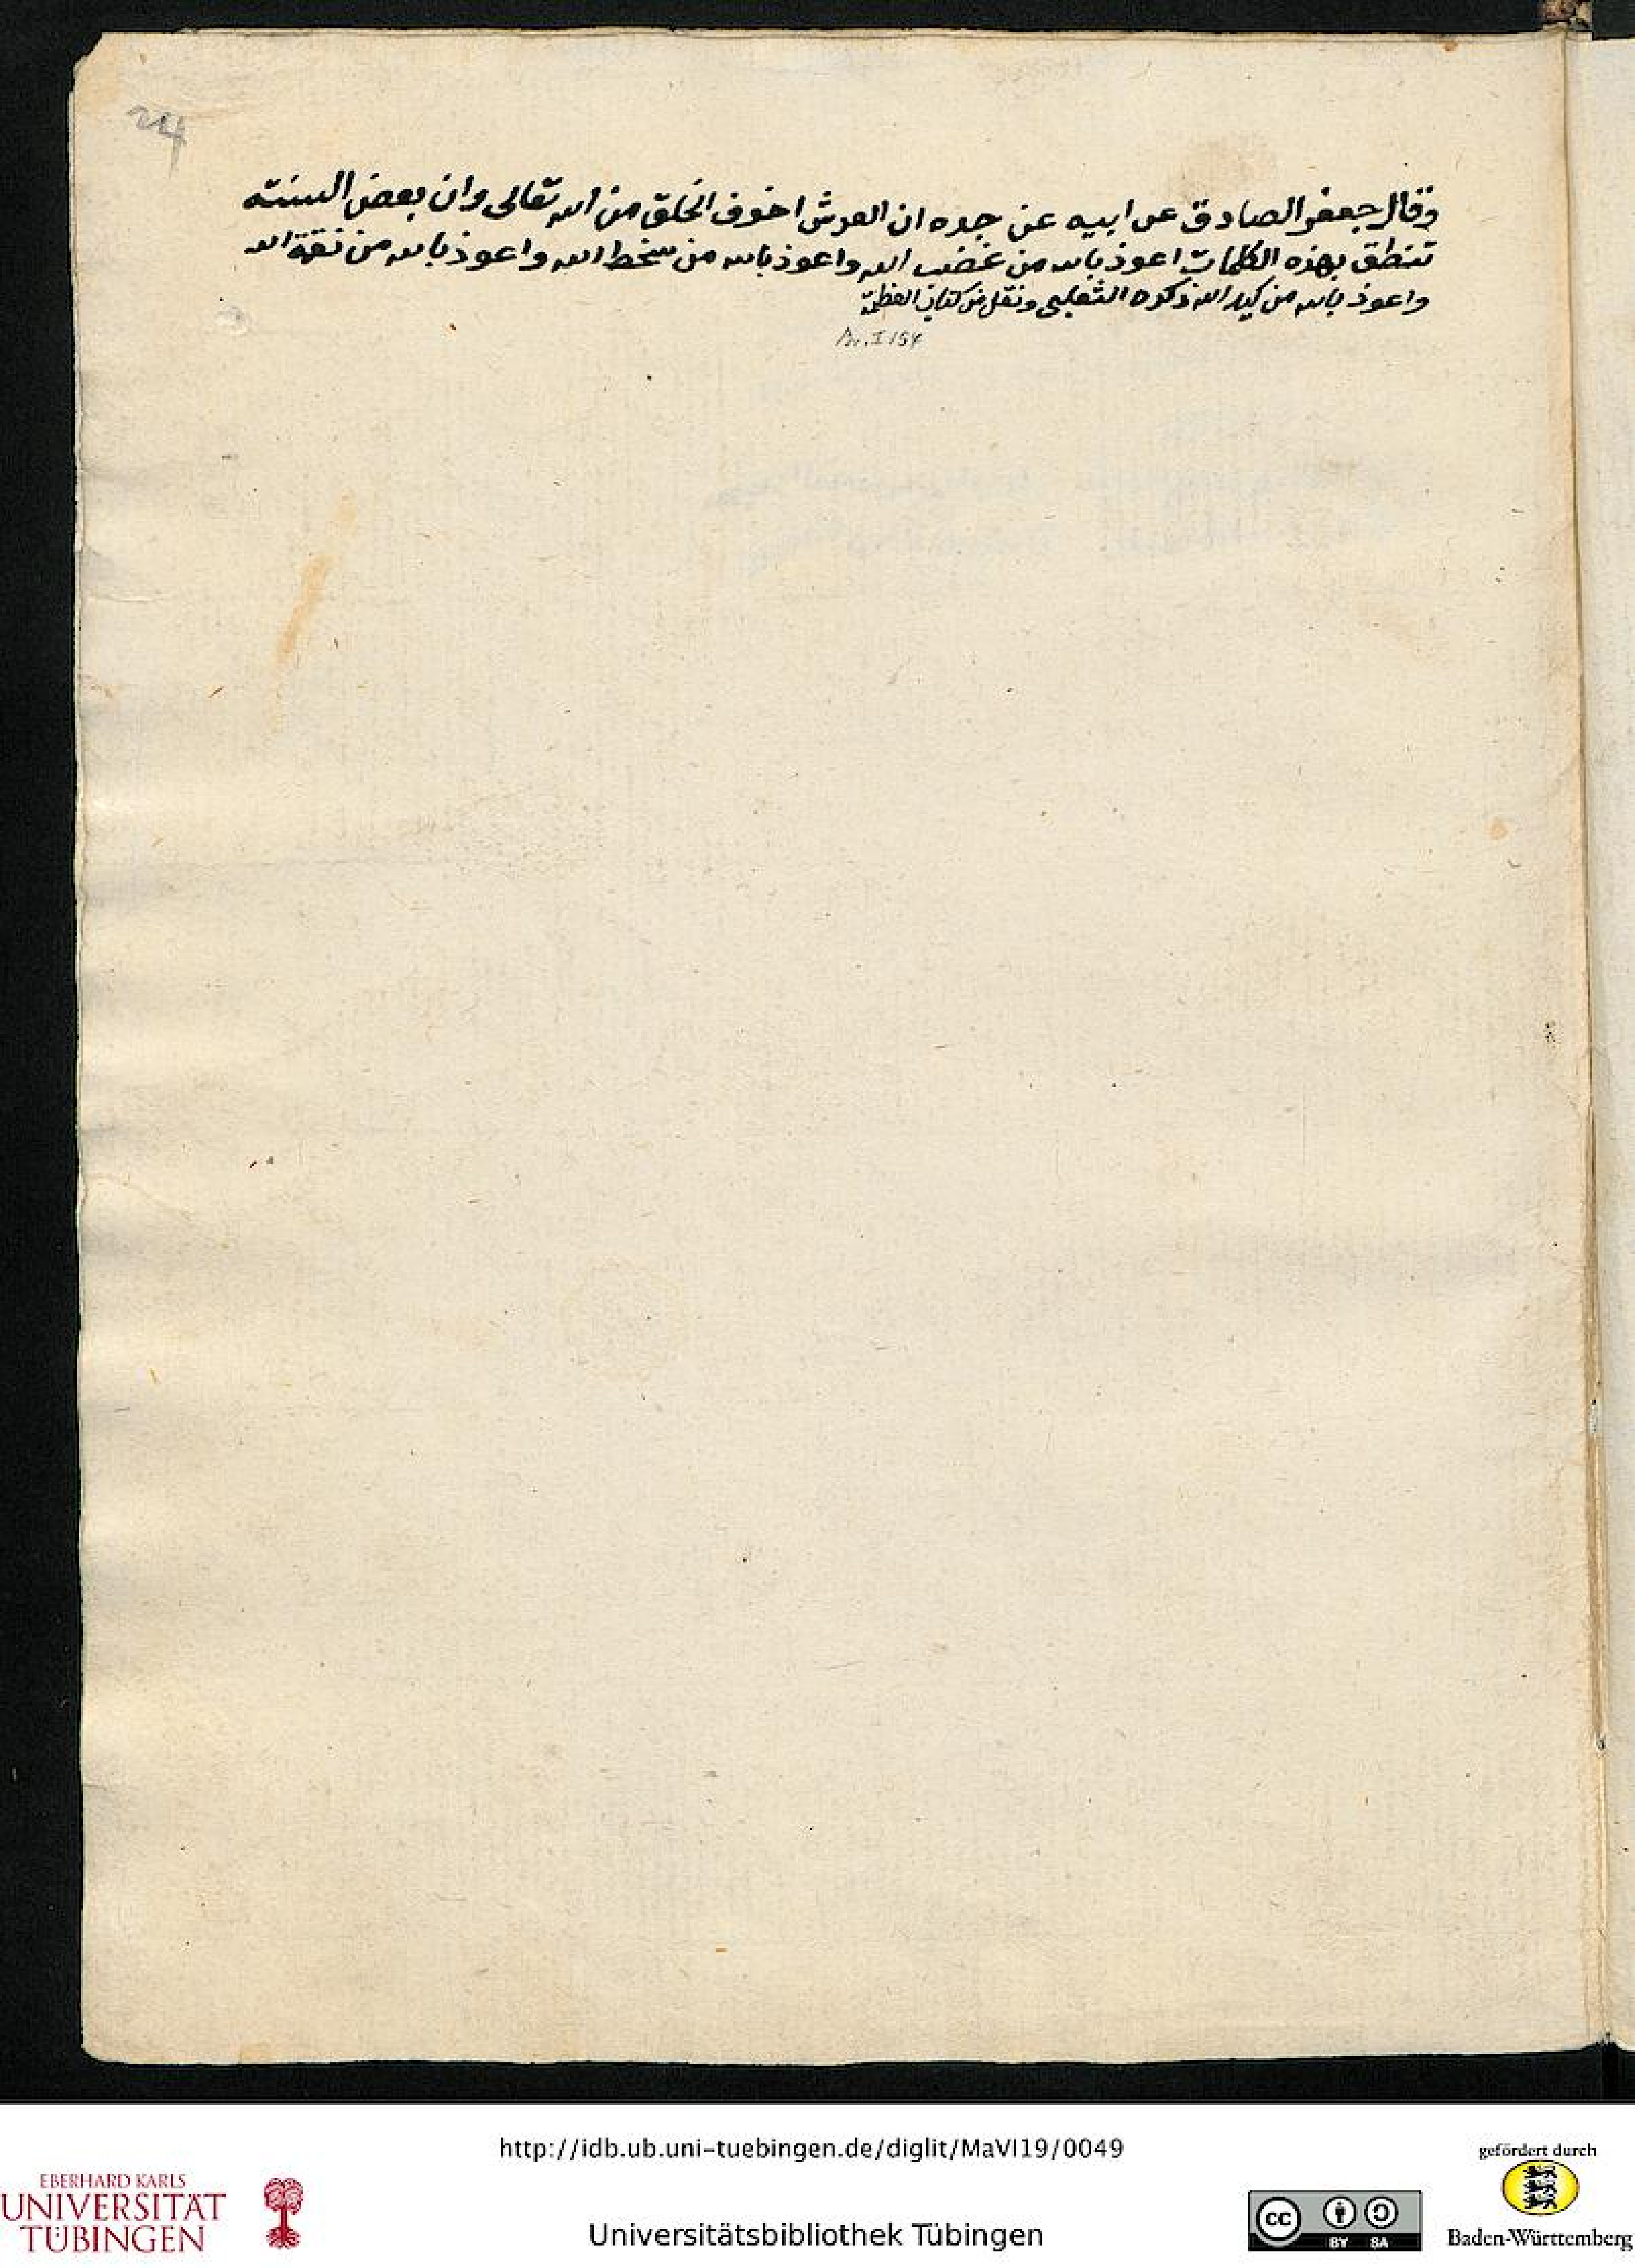 24
وقال جعفر الصادق عن ابيه عن جده ان العرش اخوف الخلق من الله تعالى وان بعض السنته
تنطق بهذه الكلمات اعوذ بالله من غضب الله واعوذ بالله من سخط الله واعوذ بالله من نقمة الله
واعوذ بالله من كيد الله ذكره الثعلبي ونقل من كتاب العظمة
Ar. I 154
http://idb.ub.uni-tuebingen.de/diglit/MaVI19/0049
gefördert durch
EBERHARD KARLS
UNIVERSITÄT
TÜBINGEN
Universitätsbibliothek Tübingen
cc BY SA
Baden-Württemberg